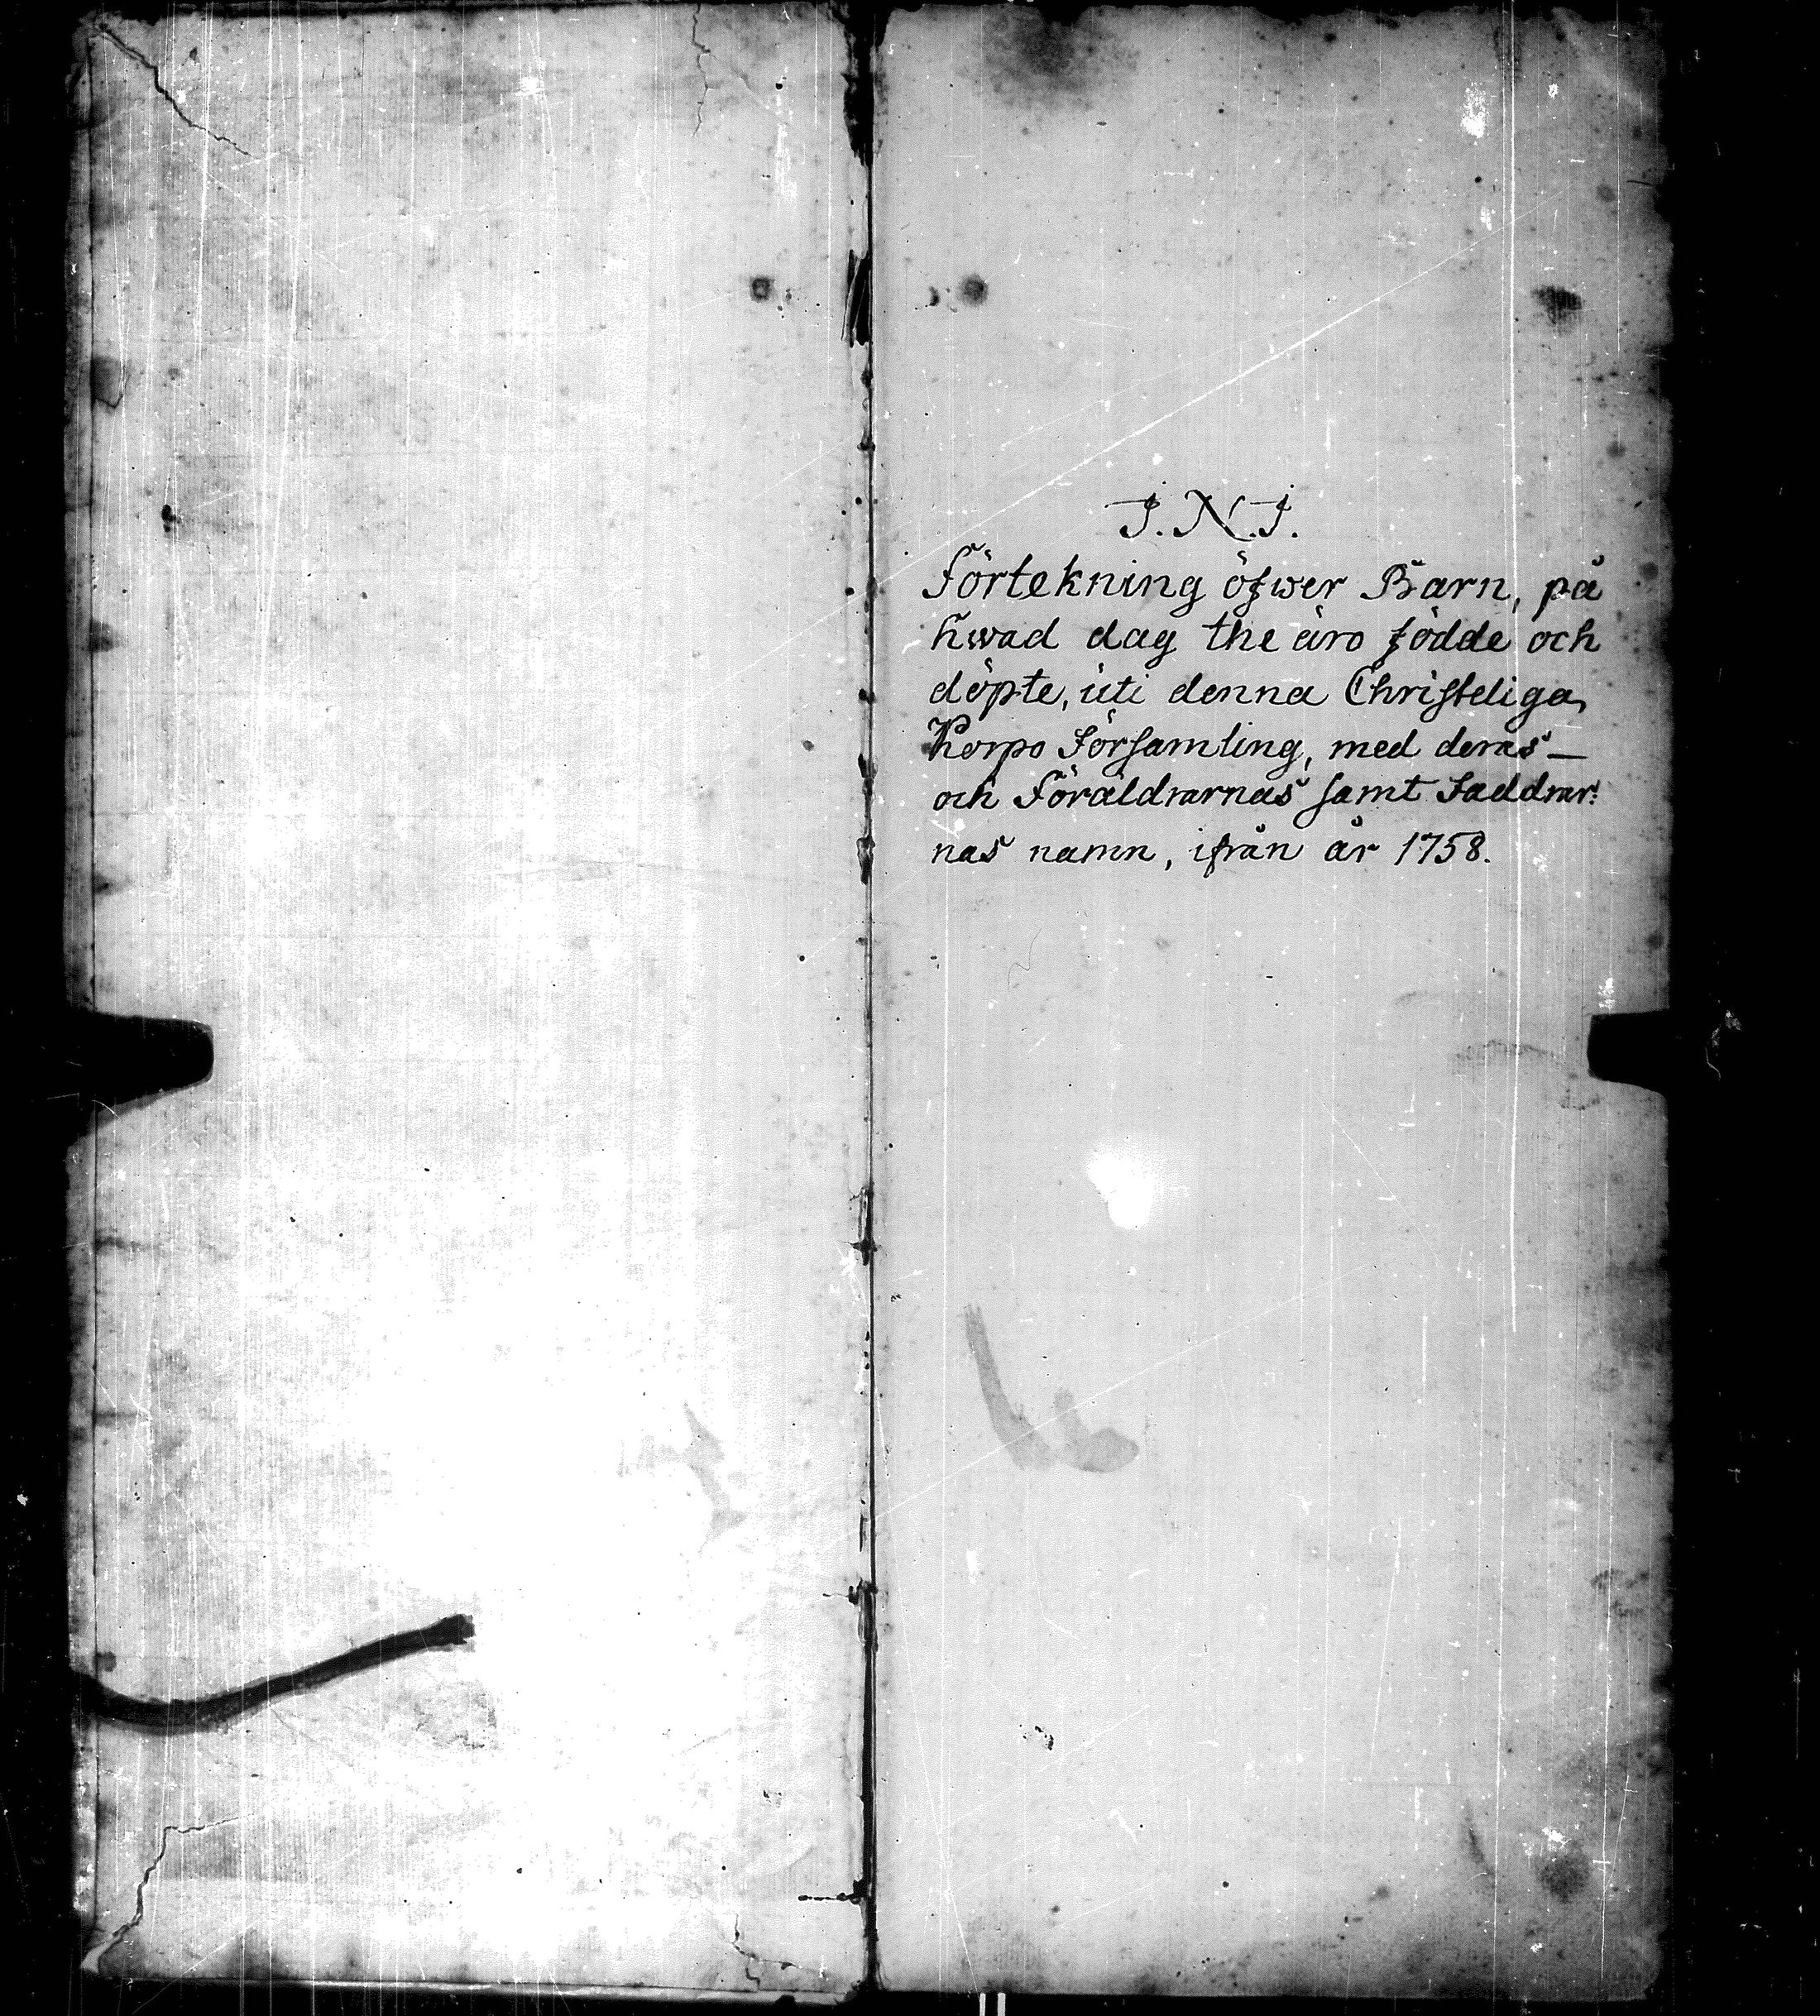 J.N.J.
Förtekning öfwer Barn, på
hwad dag the äro födde och
döpte, uti denna Christeliga
Korpo Församling, med deras –
och Föräldrarnas samt Faddrar:
nas namn, ifrån år 1758.